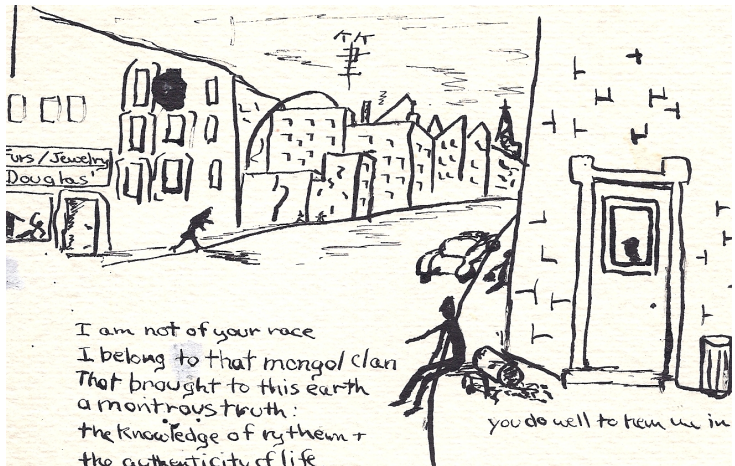 Furs/Jewelry
Douglas'
I am not of your race
I belong to that mongol clan
That brought to this earth
a montrous truth:
the knowledge of rythem +
the authenticity of life
you do well to hem me in